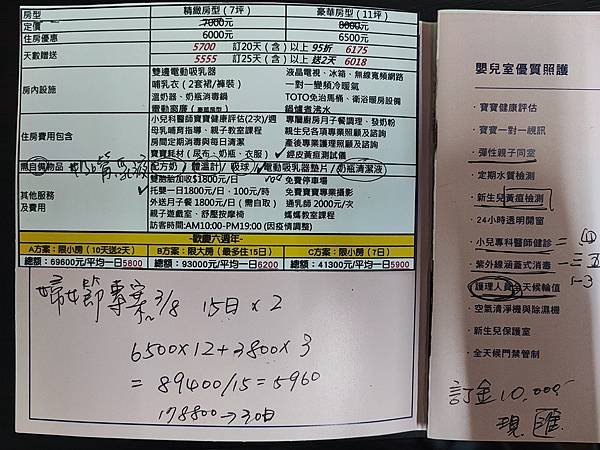 房型 精緻房型(7坪) 豪華房型(11坪)
定價 7000元 8000元
住房優惠 6000元 6500元
天數贈送 5700 訂20天(含)以上 95折 6175
5555 訂25天(含)以上 送2天 6018
房內設施 雙邊電動吸乳器 液晶電視、冰箱、無線寬頻網路
哺乳衣(2套裙/褲裝) 一對一變頻冷暖氣
溫奶器、奶瓶消毒鍋 TOTO免治馬桶、衛浴暖房設備
電動窗簾(豪華房型) 鍋爐煮沸水
住房費用包含 小兒科醫師寶寶健康評估(2次)/週 專屬廚房月子餐調理、發奶粉
母乳哺育指導、親子教室課程 親生兒各項專業照顧及諮詢
房間定期消毒與每日清潔 產後專業護理照顧及諮詢
寶寶耗材(尿布、奶瓶、衣服) ✓ 經皮黃疸測試儀
需自備物品 奶瓶乳液 配方奶/體溫計/吸球/✓電動吸乳器墊片/奶瓶清潔液
其他服務及費用 雙胞胎加收$1800元/日 免費停車場
托嬰一日1800元/日,100元/時 免費寶寶專業攝影
外送月子餐1800元/日(需自取) 通乳師 2000元/次
親子遊戲室、舒壓按摩椅 媽媽教室課程
訪客時間:AM10:00-PM19:00(因疫情調整)
-歡慶六週年-
A方案:限小房(10天送2天) B方案:限大房(最多住15日) C方案:限小房(7日)
總額:69600元/平均一日5800 總額:93000元/平均一日6200 總額:41300元/平均一日5900
婦女節專案 3/8 15日×2
6500×12+3800×3
= 89400/15 = 5960
178800→30日
嬰兒室優質照護
・寶寶健康評估
・寶寶一對一視訊
・彈性親子同室
・定期水質檢測
・新生兒黃疸檢測
・24小時透明開窗
・小兒專科醫師健診 = 四
・紫外線涵蓋式消毒 一三五
1-3
・護理人員全天候輪值
・空氣清淨機與除濕機
・新生兒保護室
・全天候門禁管制
訂金10,000
現 匯